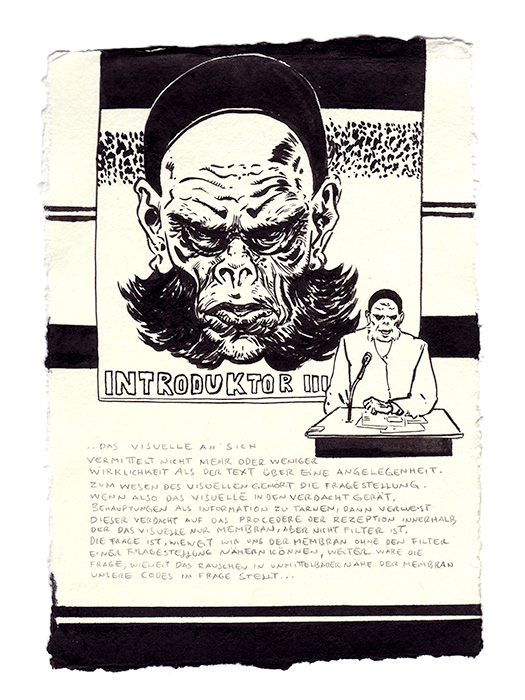 INTRODUKTOR III
..DAS VISUELLE AN SICH
VERMITTELT NICHT MEHR ODER WENIGER
WIRKLICHKEIT ALS DER TEXT ÜBER EINE ANGELEGENHEIT.
ZUM WESEN DES VISUELLEN GEHÖRT DIE FRAGESTELLUNG.
WENN ALSO DAS VISUELLE IN DEN VERDACHT GERÄT,
BEHAUPTUNGEN ALS INFORMATION ZU TARNEN, DANN VERWEIST
DIESER VERDACHT AUF DAS PROCEDERE DER REZEPTION INNERHALB
DER DAS VISUELLE NUR MEMBRAN, ABER NICHT FILTER IST.
DIE FRAGE IST, WIEWEIT WIR UNS DER MEMBRAN OHNE DEN FILTER
EINER FRAGESTELLUNG NÄHERN KÖNNEN, WEITER WÄRE DIE
FRAGE, WIEWEIT DAS RAUSCHEN IN UNMITTELBARER NÄHE DER MEMBRAN
UNSERE CODES IN FRAGE STELLT...